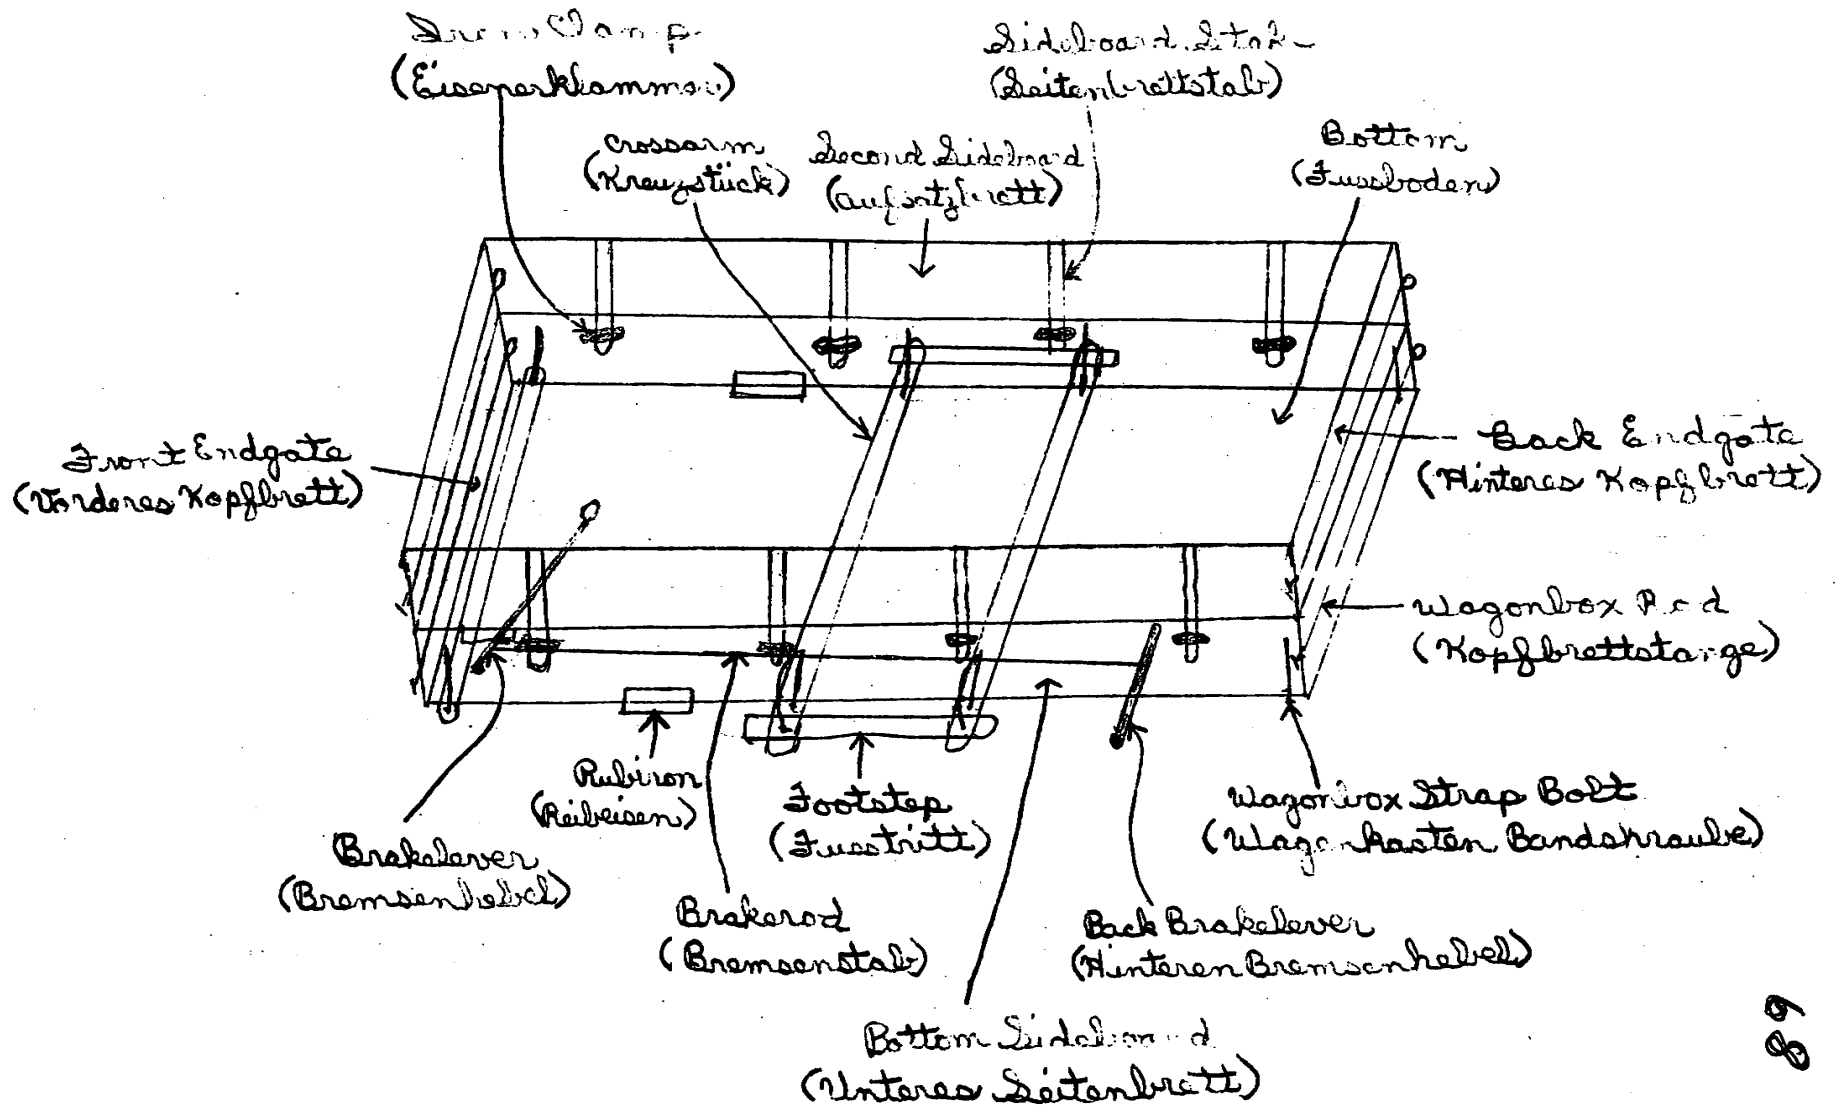 Iron Clamp
(Eisenerklammer)
Sideboard Stak
(Seitenbrettstab)
Crossarm
(Kreuzstück)
Second Sideboard
(Aufsatzbrett)
Bottom
(Fussboden)
Front Endgate
(Vorderes Kopfbrett)
Back Endgate
(Hinteres Kopfbrett)
Wagonbox Rod
(Kopfbrettstange)
Rubiron
(Reibeisen)
Footstep
(Fusstritt)
Wagonbox Strap Bolt
(Wagenkasten Bandskraube)
Brakelever
(Bremsenhebel)
Brakerod
(Bremsenstab)
Back Brakelever
(Hinteren Bremsenhebel)
Bottom Sideboard
(Unteres Seitenbrett)
89